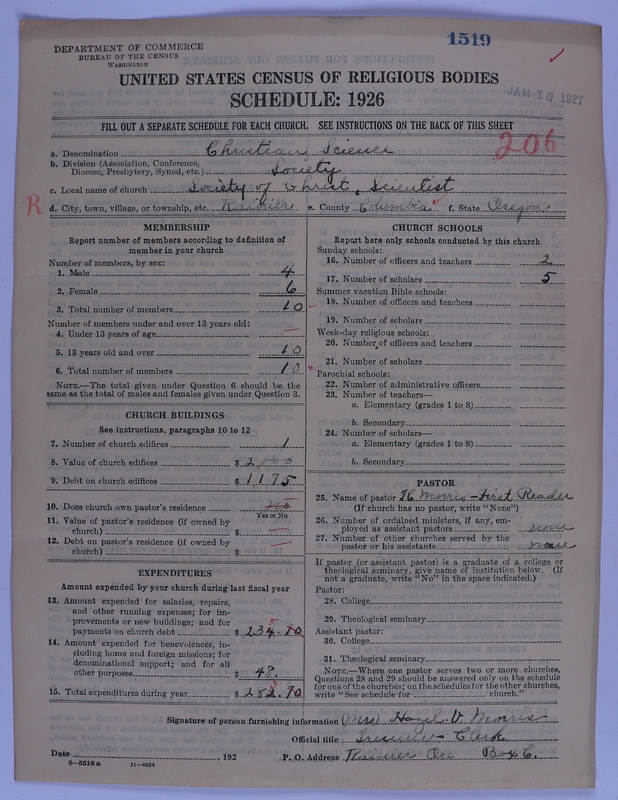 1519
DEPARTMENT OF COMMERCE
BUREAU OF THE CENSUS
WASHINGTON
UNITED STATES CENSUS OF RELIGIOUS BODIES
JAN 10 1927
SCHEDULE: 1926
FILL OUT A SEPARATE SCHEDULE FOR EACH CHURCH. SEE INSTRUCTIONS ON THE BACK OF THIS SHEET
206
a. Denomination Christian Science
b. Division (Association, Conference,
Diocese, Presbytery, Synod, etc.) Society
c. Local name of church Society of Christ, Scientist
R d. City, town, village, or township, etc. Rainier e. County Columbia f. State Oregon
MEMBERSHIP
Report number of members according to definition of
member in your church
Number of members, by sex:
1. Male 4
2. Female 6
3. Total number of members 10
Number of members under and over 13 years old:
4. Under 13 years of age —
5. 13 years old and over 10
6. Total number of members 10
NOTE.—The total given under Question 6 should be the
same as the total of males and females given under Question 3.
CHURCH BUILDINGS
See instructions, paragraphs 10 to 12
7. Number of church edifices 1
8. Value of church edifices $ 2,000
9. Debt on church edifices $ 1,175
10. Does church own pastor's residence no
Yes or No
11. Value of pastor's residence (if owned by
church) $ —
12. Debt on pastor's residence (if owned by
church) $ —
EXPENDITURES
Amount expended by your church during last fiscal year
13. Amount expended for salaries, repairs,
and other running expenses; for im-
provements or new buildings; and for
payments on church debt $ 234.70
14. Amount expended for benevolences, in-
cluding home and foreign missions; for
denominational support; and for all
other purposes $ 48.
15. Total expenditures during year $ 282.70
CHURCH SCHOOLS
Report here only schools conducted by this church
Sunday schools:
16. Number of officers and teachers 2
17. Number of scholars 5
Summer vacation Bible schools:
18. Number of officers and teachers
19. Number of scholars
Week-day religious schools:
20. Number of officers and teachers
21. Number of scholars
Parochial schools:
22. Number of administrative officers
23. Number of teachers—
a. Elementary (grades 1 to 8)
b. Secondary
24. Number of scholars—
a. Elementary (grades 1 to 8)
b. Secondary
PASTOR
25. Name of pastor Morris - First Reader
(If church has no pastor, write "None")
26. Number of ordained ministers, if any, em-
ployed as assistant pastors none
27. Number of other churches served by the
pastor or his assistants none
If pastor (or assistant pastor) is a graduate of a college or
theological seminary, give name of institution below. (If
not a graduate, write "No" in the space indicated.)
Pastor:
28. College
29. Theological seminary
Assistant pastor:
30. College
31. Theological seminary
NOTE.—Where one pastor serves two or more churches,
Questions 28 and 29 should be answered only on the schedule
for one of the churches; on the schedules for the other churches,
write "See schedule for church."
Signature of person furnishing information Mrs Hazel V. Morris
Official title Clerk
Date , 192 P. O. Address Rainier Ore Box C.
8—5518 a 11—9654